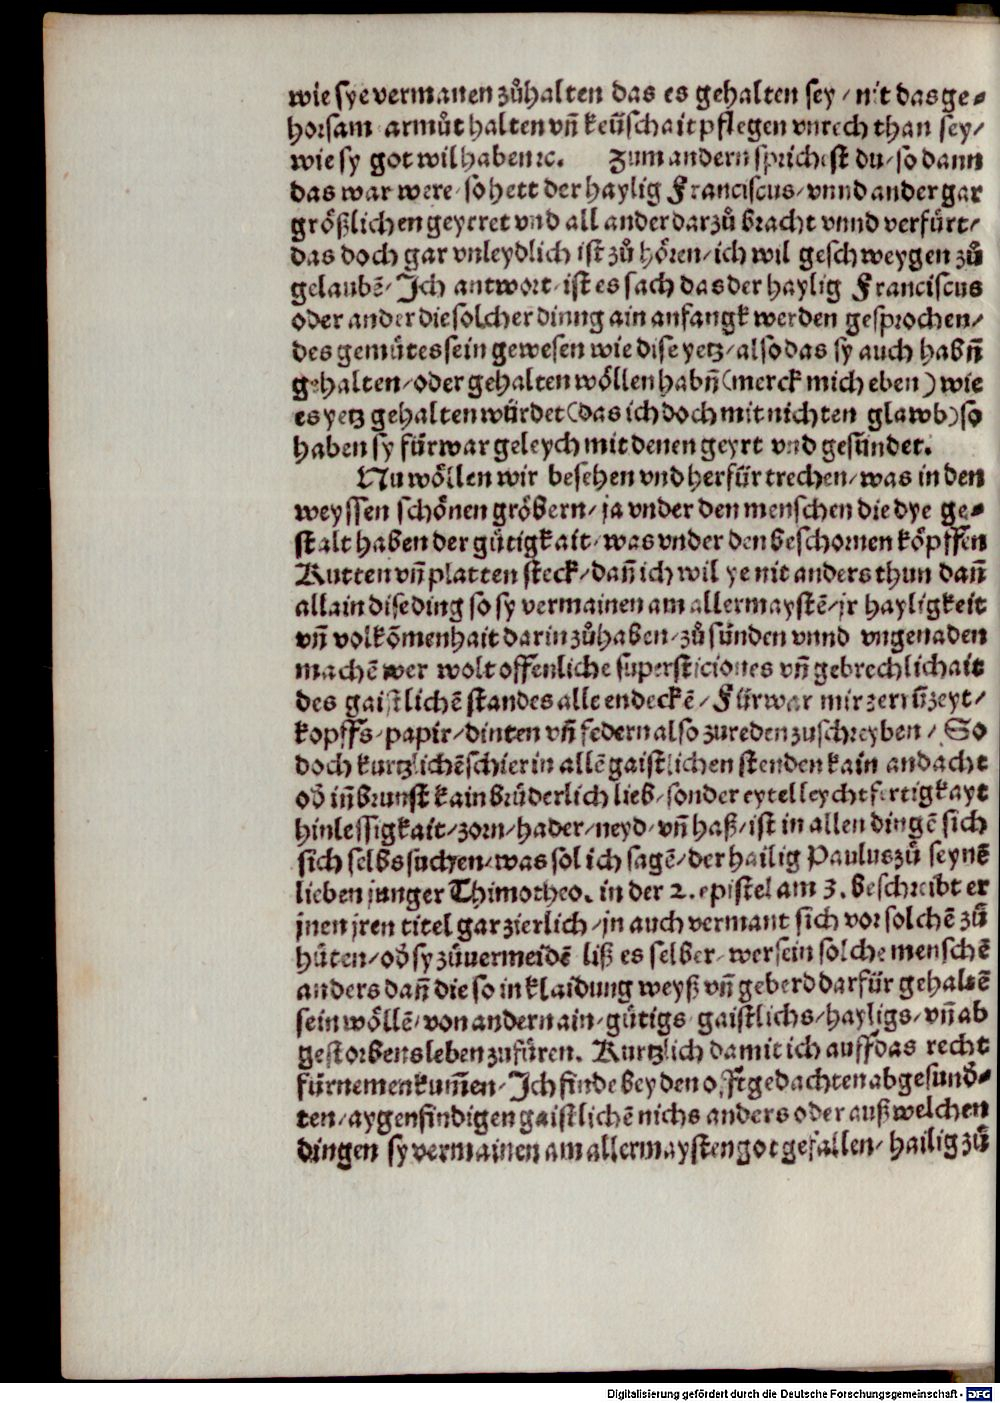 wie sye vermanen zůhalten das es gehalten sey / nit das ge⸗
horsam armůt halten vñ keüschait pflegen vnrech than sey /
wie sy got wil haben ⁊c. Zum andern sprichest du / so dann
das war were / so hett der haylig Franciscus / vnnd ander gar
größlichen geyrret vnd all ander darzů bracht vnnd verfürt /
das doch gar vnleydlich ist zů hören / ich wil geschweygen zů
gelaubē / Ich antwort / ist es sach das der haylig Franciscus
oder ander die solcher dinng ain anfangk werden gesprochen /
des gemůtes sein gewesen wie dise yetz / also das sy auch habñ
gehalten / oder gehalten wöllen habñ (merck mich eben) wie
es yetz gehalten würdet (das ich doch mit nichten glawb) so
haben sy fürwar geleych mit denen geyrt vnd gesündet.
Nu wöllen wir besehen vnd herfür trechen / was in den
weyssen schönen gröbern / ja vnder den menschen die dye ge⸗
stalt haben der gütigkait / was vnder den beschornen köpffen
Kutten vñ platten steck / dañ ich wil ye nit anders thun dañ
allain dise ding so sy vermainen am allermaystē / jr hayligkeit
vñ volkōmenhait darin zůhaben / zů sünden vnnd vngenaden
machē wer wolt offenliche supersticiones vñ gebrechlichait
des gaistlichē standes alle endeckē / Fürwar mir zerrüñ zeyt /
kopffs / papir / dinten vñ federn also zureden zuschreyben / So
doch kurtzlichē schier in allē gaistlichen stenden kain andacht
od̄ iñbrunst kain brüderlich lieb / sonder eytel leychtfertigkayt
hinlessigkait / zorn / hader / neyd / vñ haß / ist in allen dingē sich
sich selbs suchen / was sol ich sagē / der hailig Paulus zů seynē
lieben junger Thimotheo. in der 2. epistel am 3. beschreibt er
jnen jren titel gar zierlich / jn auch vermant sich vor solchē zů
hüten / od̄ sy zůuermeidē liß es selber / wer sein solche menschē
anders dañ die so in klaidung weyß vñ geberd darfür gehaltē
sein wöllē / von andern ain / gütigs gaistlichs / hayligs / vñ ab
gestorbens leben zufüren. Kurtzlich damit ich auff das recht
fürnemen kum̃en / Ich finde bey den offtgedachten abgesund̄⸗
ten / aygensindigen gaistlichē nichs anders oder auß welchen
dingen sy vermainen am allermaysten got gefallen / hailig zů
Digitalisierung gefördert durch die Deutsche Forschungsgemeinschaft - DFG